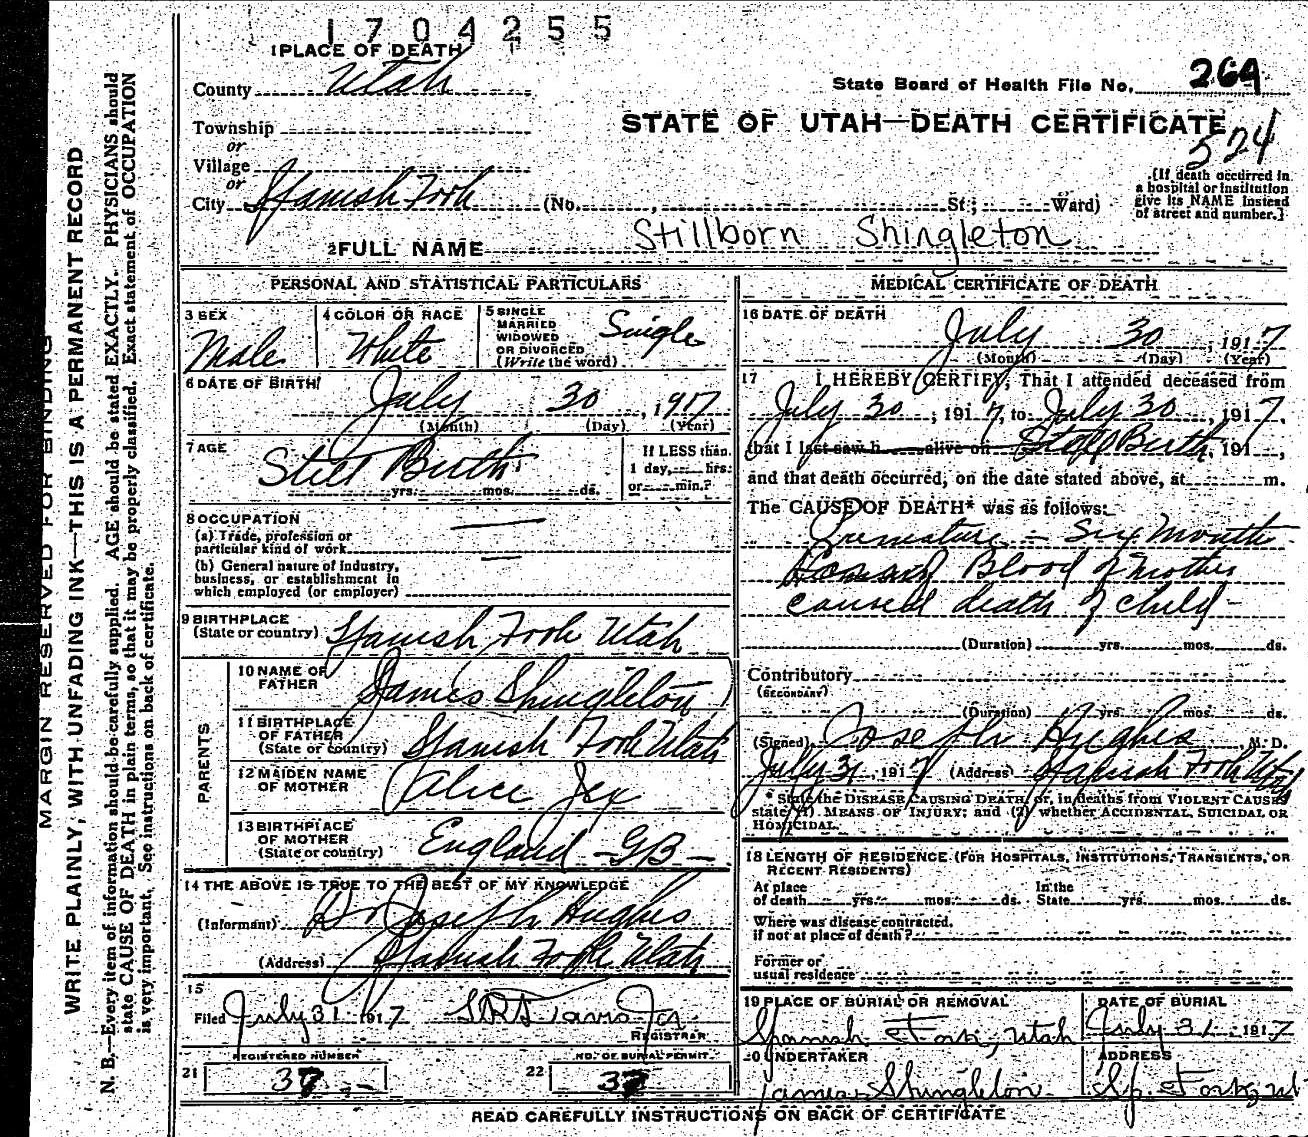 1704255
1 PLACE OF DEATH
County Utah
State Board of Health File No. 269
STATE OF UTAH—DEATH CERTIFICATE
524
Township
or
Village
or
City Spanish Fork (No. , St.; Ward)
[If death occurred in
a hospital or institution
give its NAME instead
of street and number.]
2 FULL NAME Stillborn Shingleton
PERSONAL AND STATISTICAL PARTICULARS
3 SEX
Male
4 COLOR OR RACE
White
5 SINGLE
MARRIED
WIDOWED
OR DIVORCED
(Write the word)
Single
6 DATE OF BIRTH
July 30, 1917
(Month) (Day) (Year)
7 AGE
Still Birth
yrs. mos. ds.
If LESS than
1 day, hrs.
or min.?
8 OCCUPATION —
(a) Trade, profession or
particular kind of work —
(b) General nature of industry,
business, or establishment in
which employed (or employer)
9 BIRTHPLACE
(State or country) Spanish Fork Utah
PARENTS
10 NAME OF
FATHER James Shingleton
11 BIRTHPLACE
OF FATHER
(State or country) Spanish Fork Utah
12 MAIDEN NAME
OF MOTHER Alice Jex
13 BIRTHPLACE
OF MOTHER
(State or country) England - GB -
14 THE ABOVE IS TRUE TO THE BEST OF MY KNOWLEDGE
(Informant) Dr Joseph Hughes
(Address) Spanish Fork Utah
15
Filed July 31 1917
REGISTRAR
REGISTERED NUMBER
21 37 -
NO. OF BURIAL PERMIT
22 37
MEDICAL CERTIFICATE OF DEATH
16 DATE OF DEATH
July 30, 1917
(Month) (Day) (Year)
17 I HEREBY CERTIFY, That I attended deceased from
July 30, 1917, to July 30, 1917,
that I last saw h alive on Still Birth, 191 ,
and that death occurred, on the date stated above, at m.
The CAUSE OF DEATH* was as follows:
Premature - Six Month -
Blood of Mother
caused death of child -
(Duration) yrs. mos. ds.
Contributory
(SECONDARY)
(Duration) yrs. mos. ds.
(Signed) Joseph Hughes, M. D.
July 31, 1917 (Address) Spanish Fork Utah
* State the DISEASE CAUSING DEATH, or, in deaths from VIOLENT CAUSES
state (1) MEANS OF INJURY; and (2) whether ACCIDENTAL, SUICIDAL OR
HOMICIDAL.
18 LENGTH OF RESIDENCE (FOR HOSPITALS, INSTITUTIONS, TRANSIENTS, OR
RECENT RESIDENTS)
At place In the
of death yrs. mos. ds. State yrs. mos. ds.
Where was disease contracted,
if not at place of death?
Former or
usual residence
19 PLACE OF BURIAL OR REMOVAL
Spanish Fork, Utah
DATE OF BURIAL
July 31 1917
20 UNDERTAKER
James Shingleton
ADDRESS
Sp. Fork, Ut
READ CAREFULLY INSTRUCTIONS ON BACK OF CERTIFICATE
MARGIN RESERVED FOR BINDING
WRITE PLAINLY, WITH UNFADING INK—THIS IS A PERMANENT RECORD
N. B.—Every item of information should be carefully supplied. AGE should be stated EXACTLY. PHYSICIANS should
state CAUSE OF DEATH in plain terms, so that it may be properly classified. Exact statement of OCCUPATION
is very important. See instructions on back of certificate.